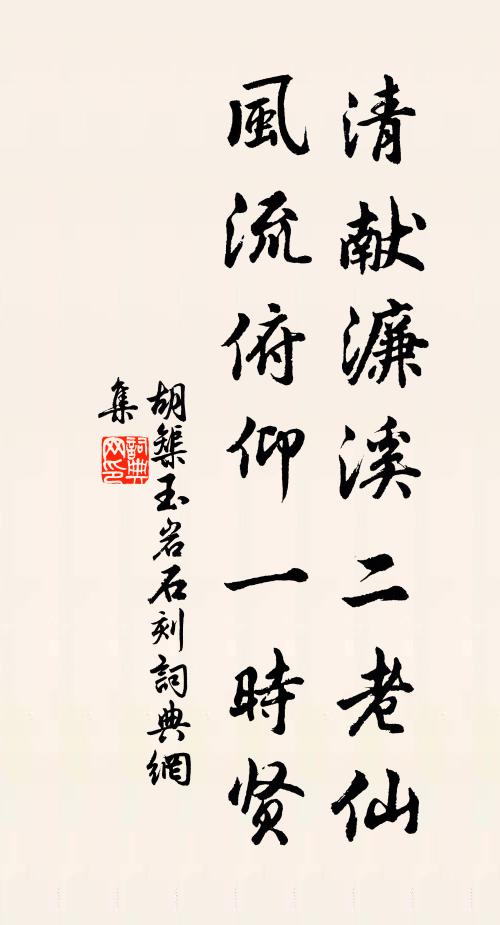 清献濂溪二老仙
風流俯仰一時贤
胡榘玉岩石刻詞典網
集
詞典
网印